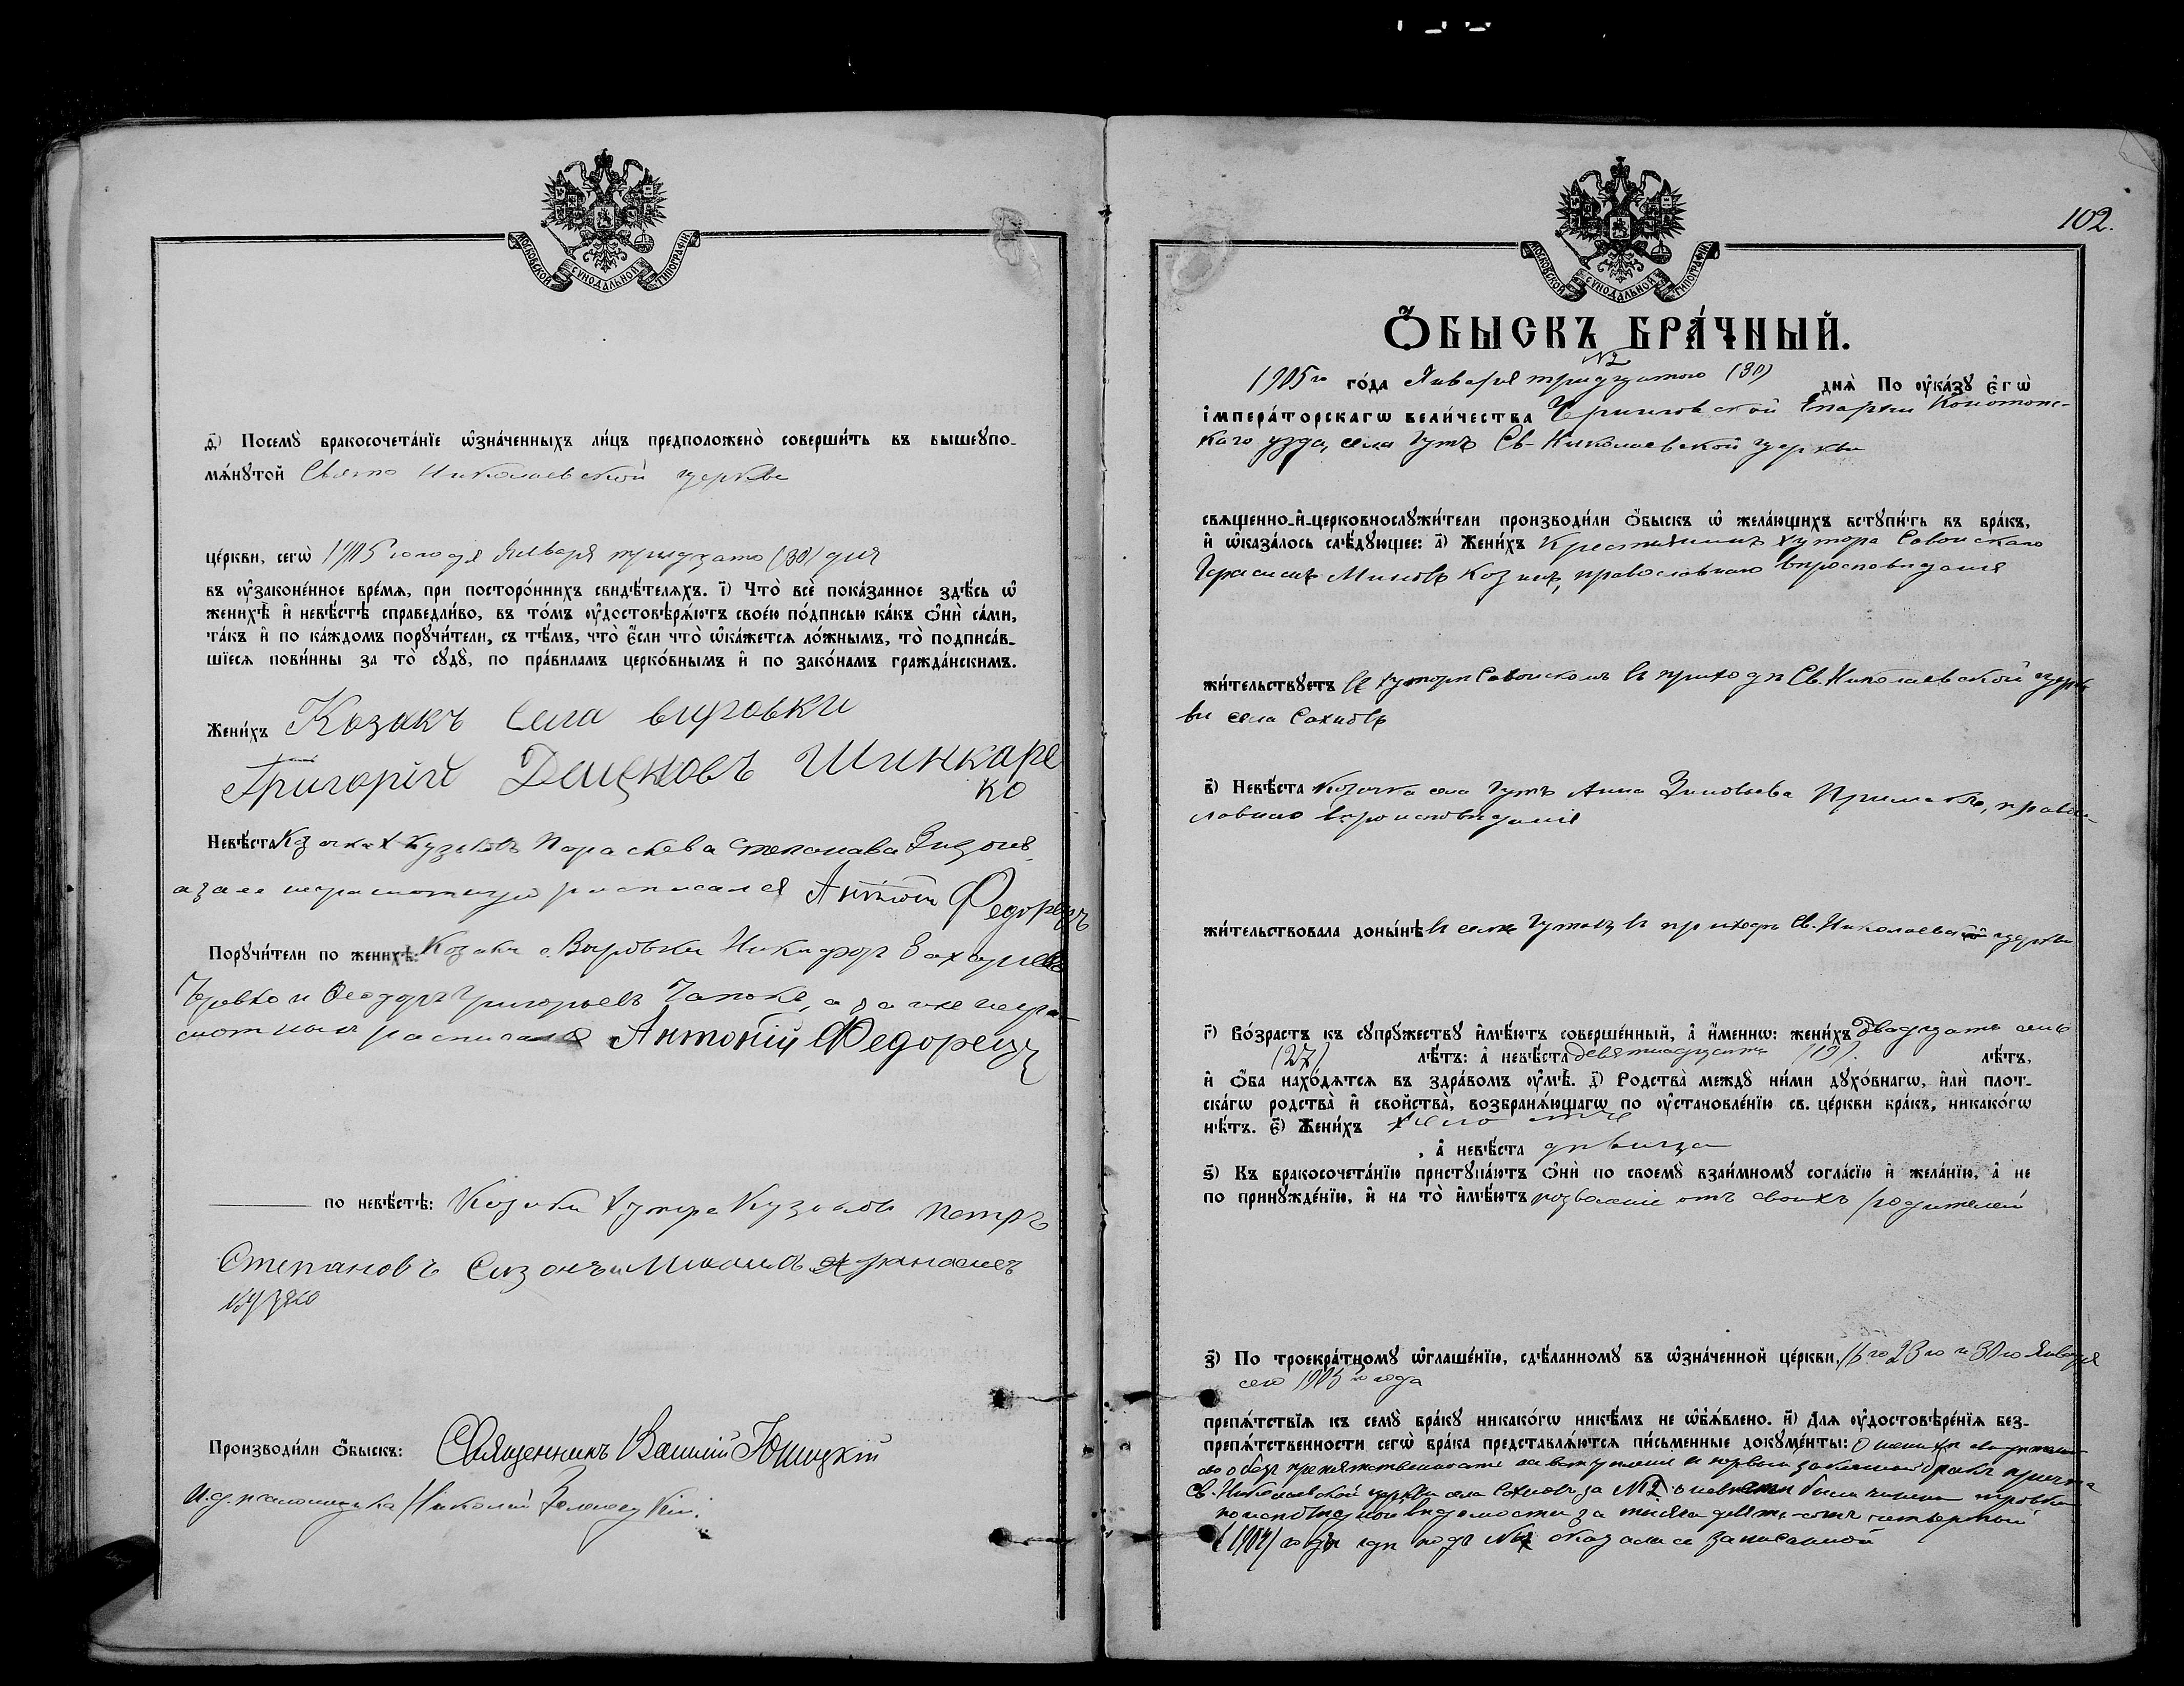 МОСКОВСКОЙ СѴНОДАЛЬНОЙ ТИПОГРАФІИ
ѳ҃) Посемꙋ̀ бракосочета́нїе ѡ҆зна́ченныхъ ли́цъ предположено̀ соверши́ть въ вышеꙋпо-
мѧ́нꙋтой Свято Николаевской церкви
це́ркви, сегѡ̀ 1905го года Января тридцато (30) дня
въ ᲂу҆законе́нное вре́мѧ, при посторо́ннихъ свидѣ́телѧхъ. і҃) Что̀ всѐ пока́занное здѣ́сь ѡ҆
женихѣ̀ и҆ невѣ́стѣ справедли́во, въ то́мъ ᲂу҆достовѣрѧ́ютъ свое́ю по́дписью ка́къ ѻ҆нѝ са́ми,
та́къ и҆ по ка́ждомъ порꙋчи́тели, съ тѣ́мъ, что̀ є҆́сли что̀ ѡ҆ка́жетсѧ ло́жнымъ, то̀ подписа́в-
шїесѧ пови́нны за то̀ сꙋдꙋ̀, по пра́виламъ церко́внымъ и҆ по зако́намъ гражда́нскимъ.
Жени́хъ Козакъ Села вировки
Григорій Демяновъ Шинкаре
ко
Невѣ́ста Параскева Степанова
а за ее неграмотную росписался Антоній Федорецъ
Порꙋчи́тели по женихѣ̀: Козаки с. Вировки Никифоръ
и Ѳеодоръ Григорьевъ а за ихъ негра-
мотныхъ росписался Антоній Федорецъ
по невѣ́стѣ: Козаки хутора Петръ
Степановъ Сизонъ и
Производи́ли ѻ҆́быскъ: Священникъ Василій Юшицкій
И. д. псаломщика Николай
102.
МОСКОВСКОЙ СѴНОДАЛЬНОЙ ТИПОГРАФІИ
Ѻ҆́БЫСКЪ БРА́ЧНЫЙ.
№2
1905го го́да Января тридцатого (30) днѧ̀ По ᲂу҆ка́зꙋ є҆гѡ̀
і҆мпера́торскагѡ вели́чества Черниговской Епархіи Конотопс-
каго уезда, села Гутъ Св-Николаевской церкви
свѧщенно-и҆-церковнослꙋжи́тели производи́ли ѻ҆́быскъ ѡ҆ жела́ющихъ встꙋпи́ть въ бра́къ,
и҆ ѡ҆каза́лось слѣ́дꙋющее: а҃) Жени́хъ Крестьянинъ хутора Савойскаго
Герасимъ Миновъ православного вероисповедания
жи́тельствꙋетъ в хуторе Савойскомъ в приходе Св. Николаевской церк
ви села Сахновъ
в҃) Невѣ́ста Козачка села Гутъ Анна Зиновьева православ-
славного вероисповедания
жи́тельствовала доны́нѣ в селе Гутахъ в приходе Св. Николаевской церкви
г҃) Во́зрастъ къ сꙋпрꙋ́жествꙋ и҆мѣ́ютъ соверше́нный, а҆ и҆́менно: жени́хъ двадцать семь
(27) лѣ́тъ: а҆ невѣ́ста девятнадцать (19). лѣ́тъ,
и҆ ѻ҆́ба нахо́дѧтсѧ въ здра́вомъ ᲂу҆мѣ̀. д҃) Родства̀ междꙋ̀ ни́ми дꙋхо́внагѡ, и҆лѝ плот-
ска́гѡ родства̀ и҆ сво́йства, возбранѧ́ющагѡ по ᲂу҆становле́нїю св. це́ркви бра́къ, никако́гѡ
нѣ́тъ. є҃) Жени́хъ
, а҆ невѣ́ста девица
ѕ҃) Къ бракосочета́нїю пристꙋпа́ютъ ѻ҆нѝ по своемꙋ̀ взаи́мномꙋ согла́сїю и҆ жела́нїю, а҆ не
по принꙋжде́нїю, и҆ на то̀ и҆мѣ́ютъ позволеніе отъ своихъ родителей
з҃) По троекра́тномꙋ ѡ҆глаше́нїю, сдѣ́ланномꙋ въ ѡ҆зна́ченной це́ркви, 16го 23го и 30го Января
сего 1905го года
препѧ́тствїѧ къ семꙋ̀ бра́кꙋ никако́гѡ никѣ́мъ не ѡ҆б̾ѧ́влено. и҃) Длѧ ᲂу҆достовѣре́нїѧ без-
препѧ́тственности сегѡ̀ бра́ка представлѧ́ютсѧ пи́сьменные докꙋме́нты: о женихе свидетель-
ство о безпрепятственности на вступление в первый законный бракъ причта
Св. Николаевской церкви села Сахновъ за №2 о невесте
исповедной ведомости за тысяча девять-сотъ четвертый
(1904) годъ где подъ № оказалась записанной